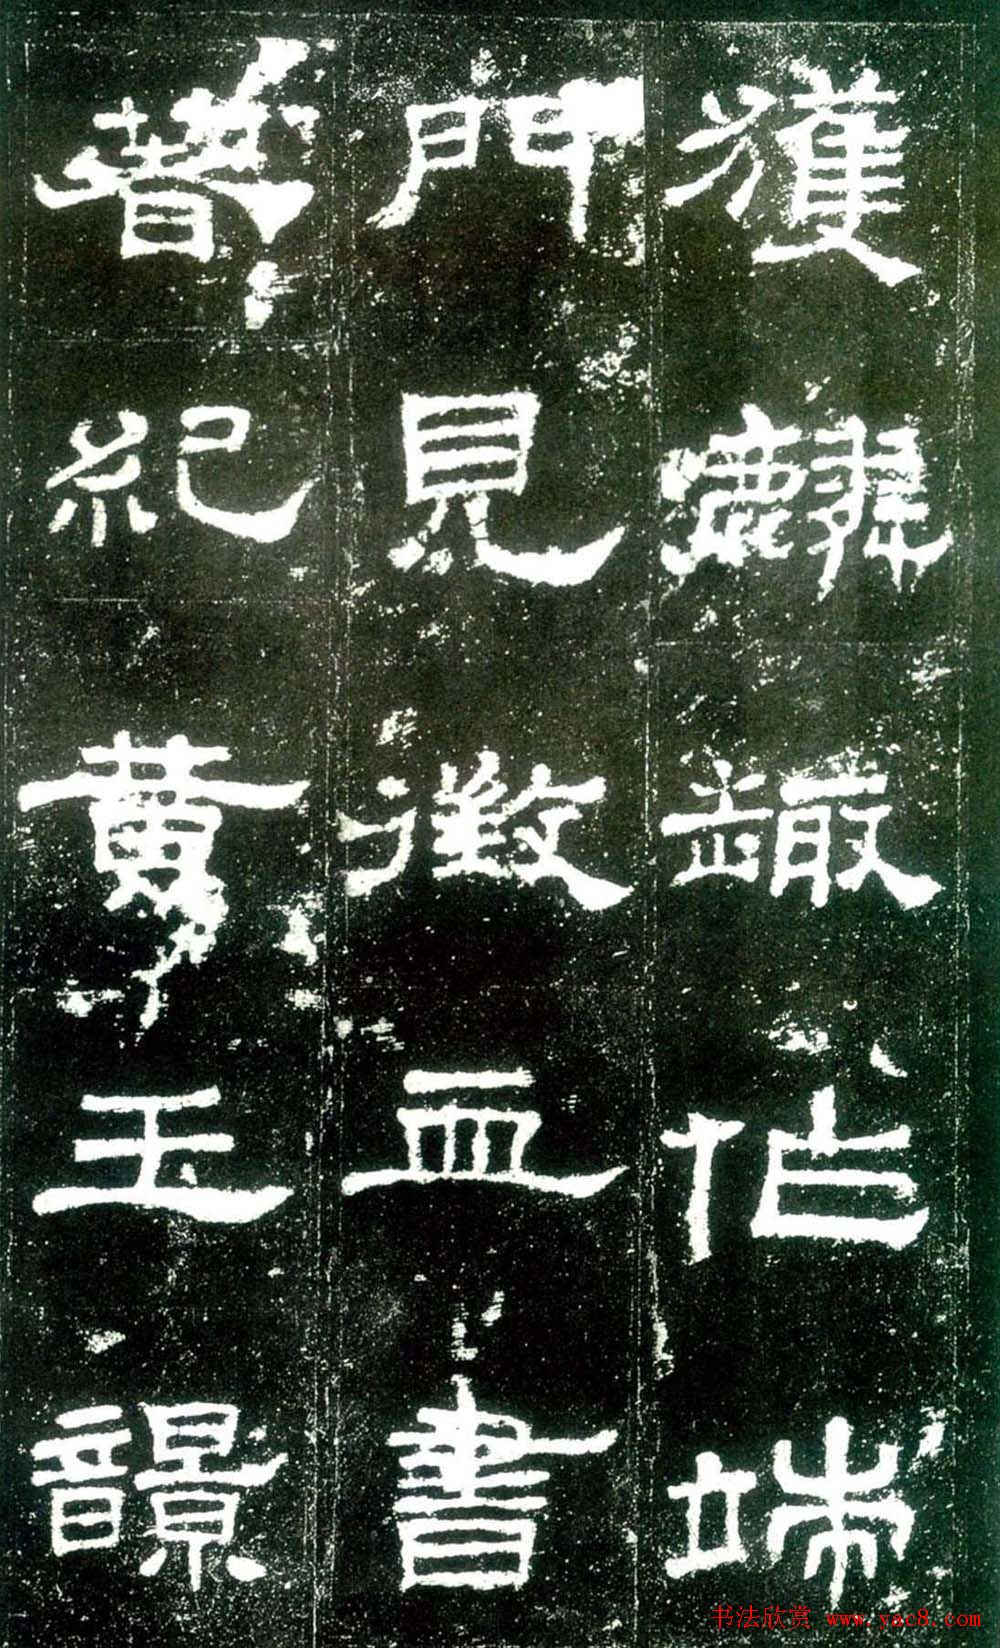 獲麟趣作端
門見徵血書
著紀黃玉䪫
书法欣赏 www.yac8.com